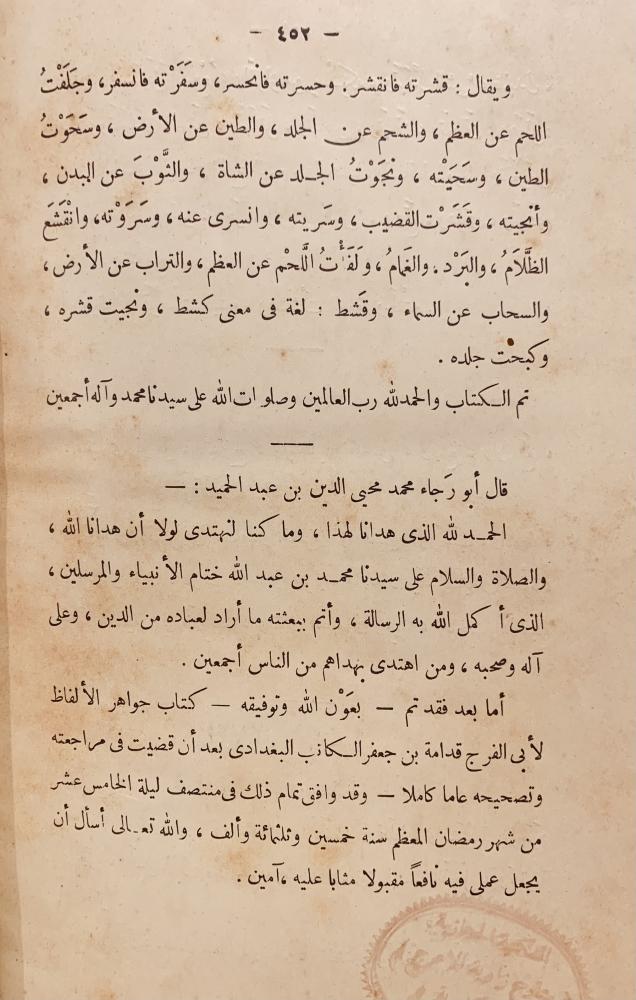 — ٤٥٢ —
ويقال : قشرته فانقشر . وحسرته فانحسر، وسَفَرْته فانسفر، وجَلَفْتُ
اللحم عن العظم ، والشحم عن الجلد ، والطين عن الأرض ، وسَحَوْتُ
الطين ، وسَحَيْته ، ونجَوْتُ الجلد عن الشاة ، والثَّوْبَ عن البدن ،
وأنجيته ، وقَشَرْت القضيب ، وسَريته ، وانسرى عنه ، وسَرَوْته، وانْقَشَعَ
الظَّلَامُ ، والبَرْد . والغَمامُ ، ولَفَأْتُ اللَّحْم عن العظم ، والتراب عن الأرض ،
والسحاب عن السماء ، وقَشط : لغة فى معنى كشط ، ونجيت قشره ،
وكبحت جلده .
تم الكتاب والحمد لله رب العالمين وصلوات الله على سيدنا محمد وآله أجمعين
قال أبو رَجاء محمد محيى الدين بن عبد الحميد : —
الحمد لله الذى هدانا لهذا ، وما كنا لنهتدى لولا أن هدانا الله ،
والصلاة والسلام على سيدنا محمد بن عبد الله ختام الأنبياء والمرسلين ،
الذى أكمل الله به الرسالة ، وأتم ببعثته ما أراد لعباده من الدين ، وعلى
آله وصحبه ، ومن اهتدى بهداهم من الناس أجمعين .
أما بعد فقد تم — بعَوْن الله وتوفيقه — كتاب جواهر الألفاظ
لأبى الفرج قدامة بن جعفر الكاتب البغدادى بعد أن قضيت فى مراجعته
وتصحيحه عاما كاملا — وقد وافق تمام ذلك فى منتصف ليلة الخامس عشر
من شهر رمضان المعظم سنة خمسين وثلثمائة وألف ، والله تعالى أسأل أن
يجعل عملى فيه نافعاً مقبولا مثابا عليه ، آمين .